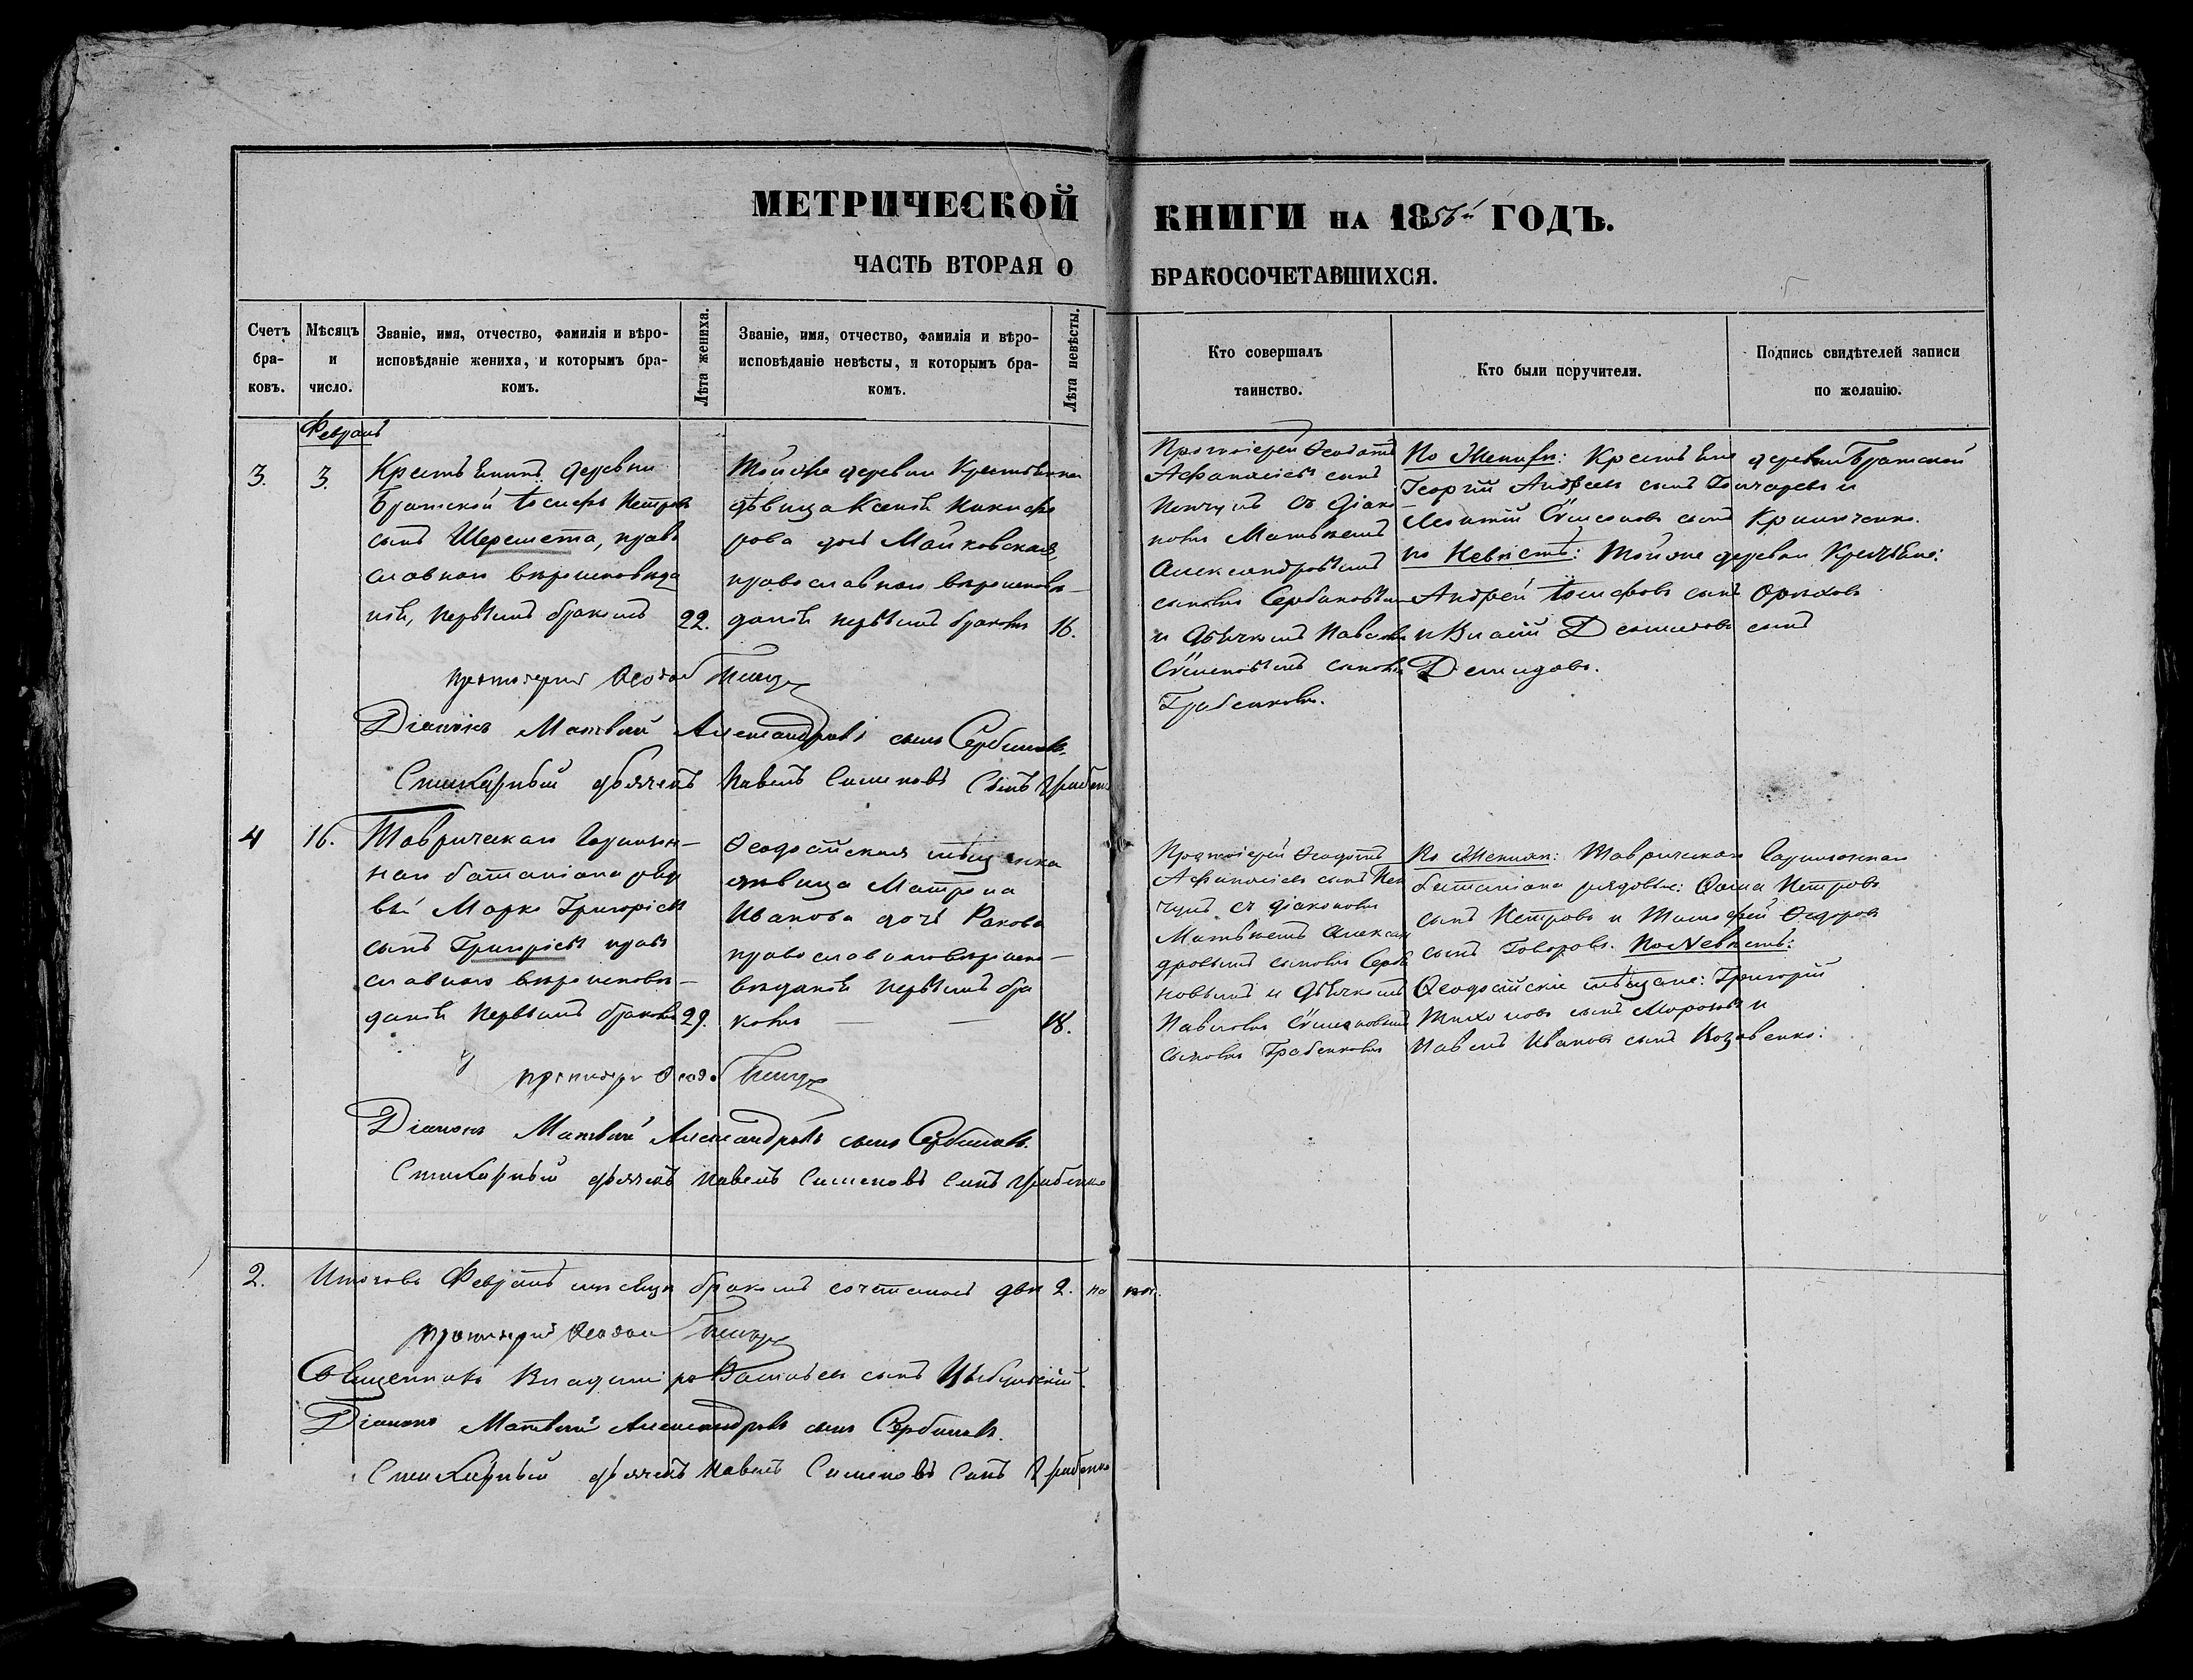 МЕТРИЧЕСКОЙ КНИГИ НА 1856й ГОДЪ.
ЧАСТЬ ВТОРАЯ О БРАКОСОЧЕТАВШИХСЯ.
Счетъ бра-ковъ.
Мѣсяцъ и число.
Званіе, имя, отчество, фамилія и вѣро-
исповѣданіе жениха, и которымъ бра-
комъ.
Лѣта жениха.
Званіе, имя, отчество, фамилія и вѣро-
исповѣданіе невѣсты, и которымъ бра-
комъ.
Лѣта невѣсты.
Кто совершалъ
таинство.
Кто были поручители.
Подпись свидѣтелей записи
по желанію.
Февраль
3.
3.
Крестьянинъ деревни
Братской Іосифъ Петровъ
сынъ Шеремета, право
славнаго вѣроисповѣда
нія, первымъ бракомъ
22.
Той же деревни Крестьянка
дѣвица Ксенія Никифо
рова дочь Майковская,
православнаго вѣроисповѣ-
данія первымъ бракомъ
16.
Протоіерей Ѳеодотъ
Афанасіевъ сынъ
съ Діако
номъ Матвѣемъ
Александровымъ
сыномъ Сербиновымъ
и Дьячкомъ Павломъ
Сѵмеоновымъ сыномъ
Грабенкомъ.
По Женихѣ: Крестьяне деревни Братской
Георгій Андреевъ сынъ Гончаровъ и
Леонтій Сѵмеоновъ сынъ
по Невѣстѣ: Той же деревни Крестьяне:
Андрей Іосифовъ сынъ Ореховъ
и Власій сынъ
Демидовъ.
протоіерей Ѳеодотъ
Діаконъ Матвій Александровъ сынъ Сербиновъ.
Стихарный дьячекъ Павелъ Симеоновъ Сынъ Грабенко
4
16.
Таврическаго Гарнизон-
наго баталіона рядо
вый Марко Григорьевъ
сынъ Григорьевъ право
славнаго вѣроисповѣ-
данія первымъ бракомъ
29.
Ѳеодосійская мѣщанка
дѣвица Матрона
Иванова дочь Ракова
православнаго вѣроиспо-
вѣданія первымъ бра
комъ — —
18.
Протоіерей Ѳеодотъ
Афанасіевъ сынъ
съ діакономъ
Матвѣемъ Алексан
дровымъ сыномъ Серби
новымъ и Дьячкомъ
Павломъ Сѵмеоновымъ
сыномъ Грабенкомъ
По Женихѣ: Таврическаго Гарнизоннаго
баталіона рядовые: Ѳома Петровъ
сынъ Петровъ и Тимофей Ѳедоровъ
сынъ Говоровъ. По Невѣстѣ:
Ѳеодосійскіе мѣщане: Григорій
Тихоновъ сынъ Морозовъ и
Павелъ Ивановъ сынъ
протоіерей Ѳеодо
Діаконъ Матвій Александровъ сынъ Сербиновъ.
Стихарный дьячекъ Павелъ Симеоновъ Сынъ Грабенко
2.
Итого въ Февралѣ мѣсяцѣ бракомъ сочеталось два 2.
протоіерей Ѳеодотъ
Священникъ Владиміръ Васильевъ сынъ Цыбульскій.
Діаконъ Матвій Александровъ сынъ Сербиновъ.
Стихарный дьячекъ Павелъ Симеоновъ Сынъ Грабенко